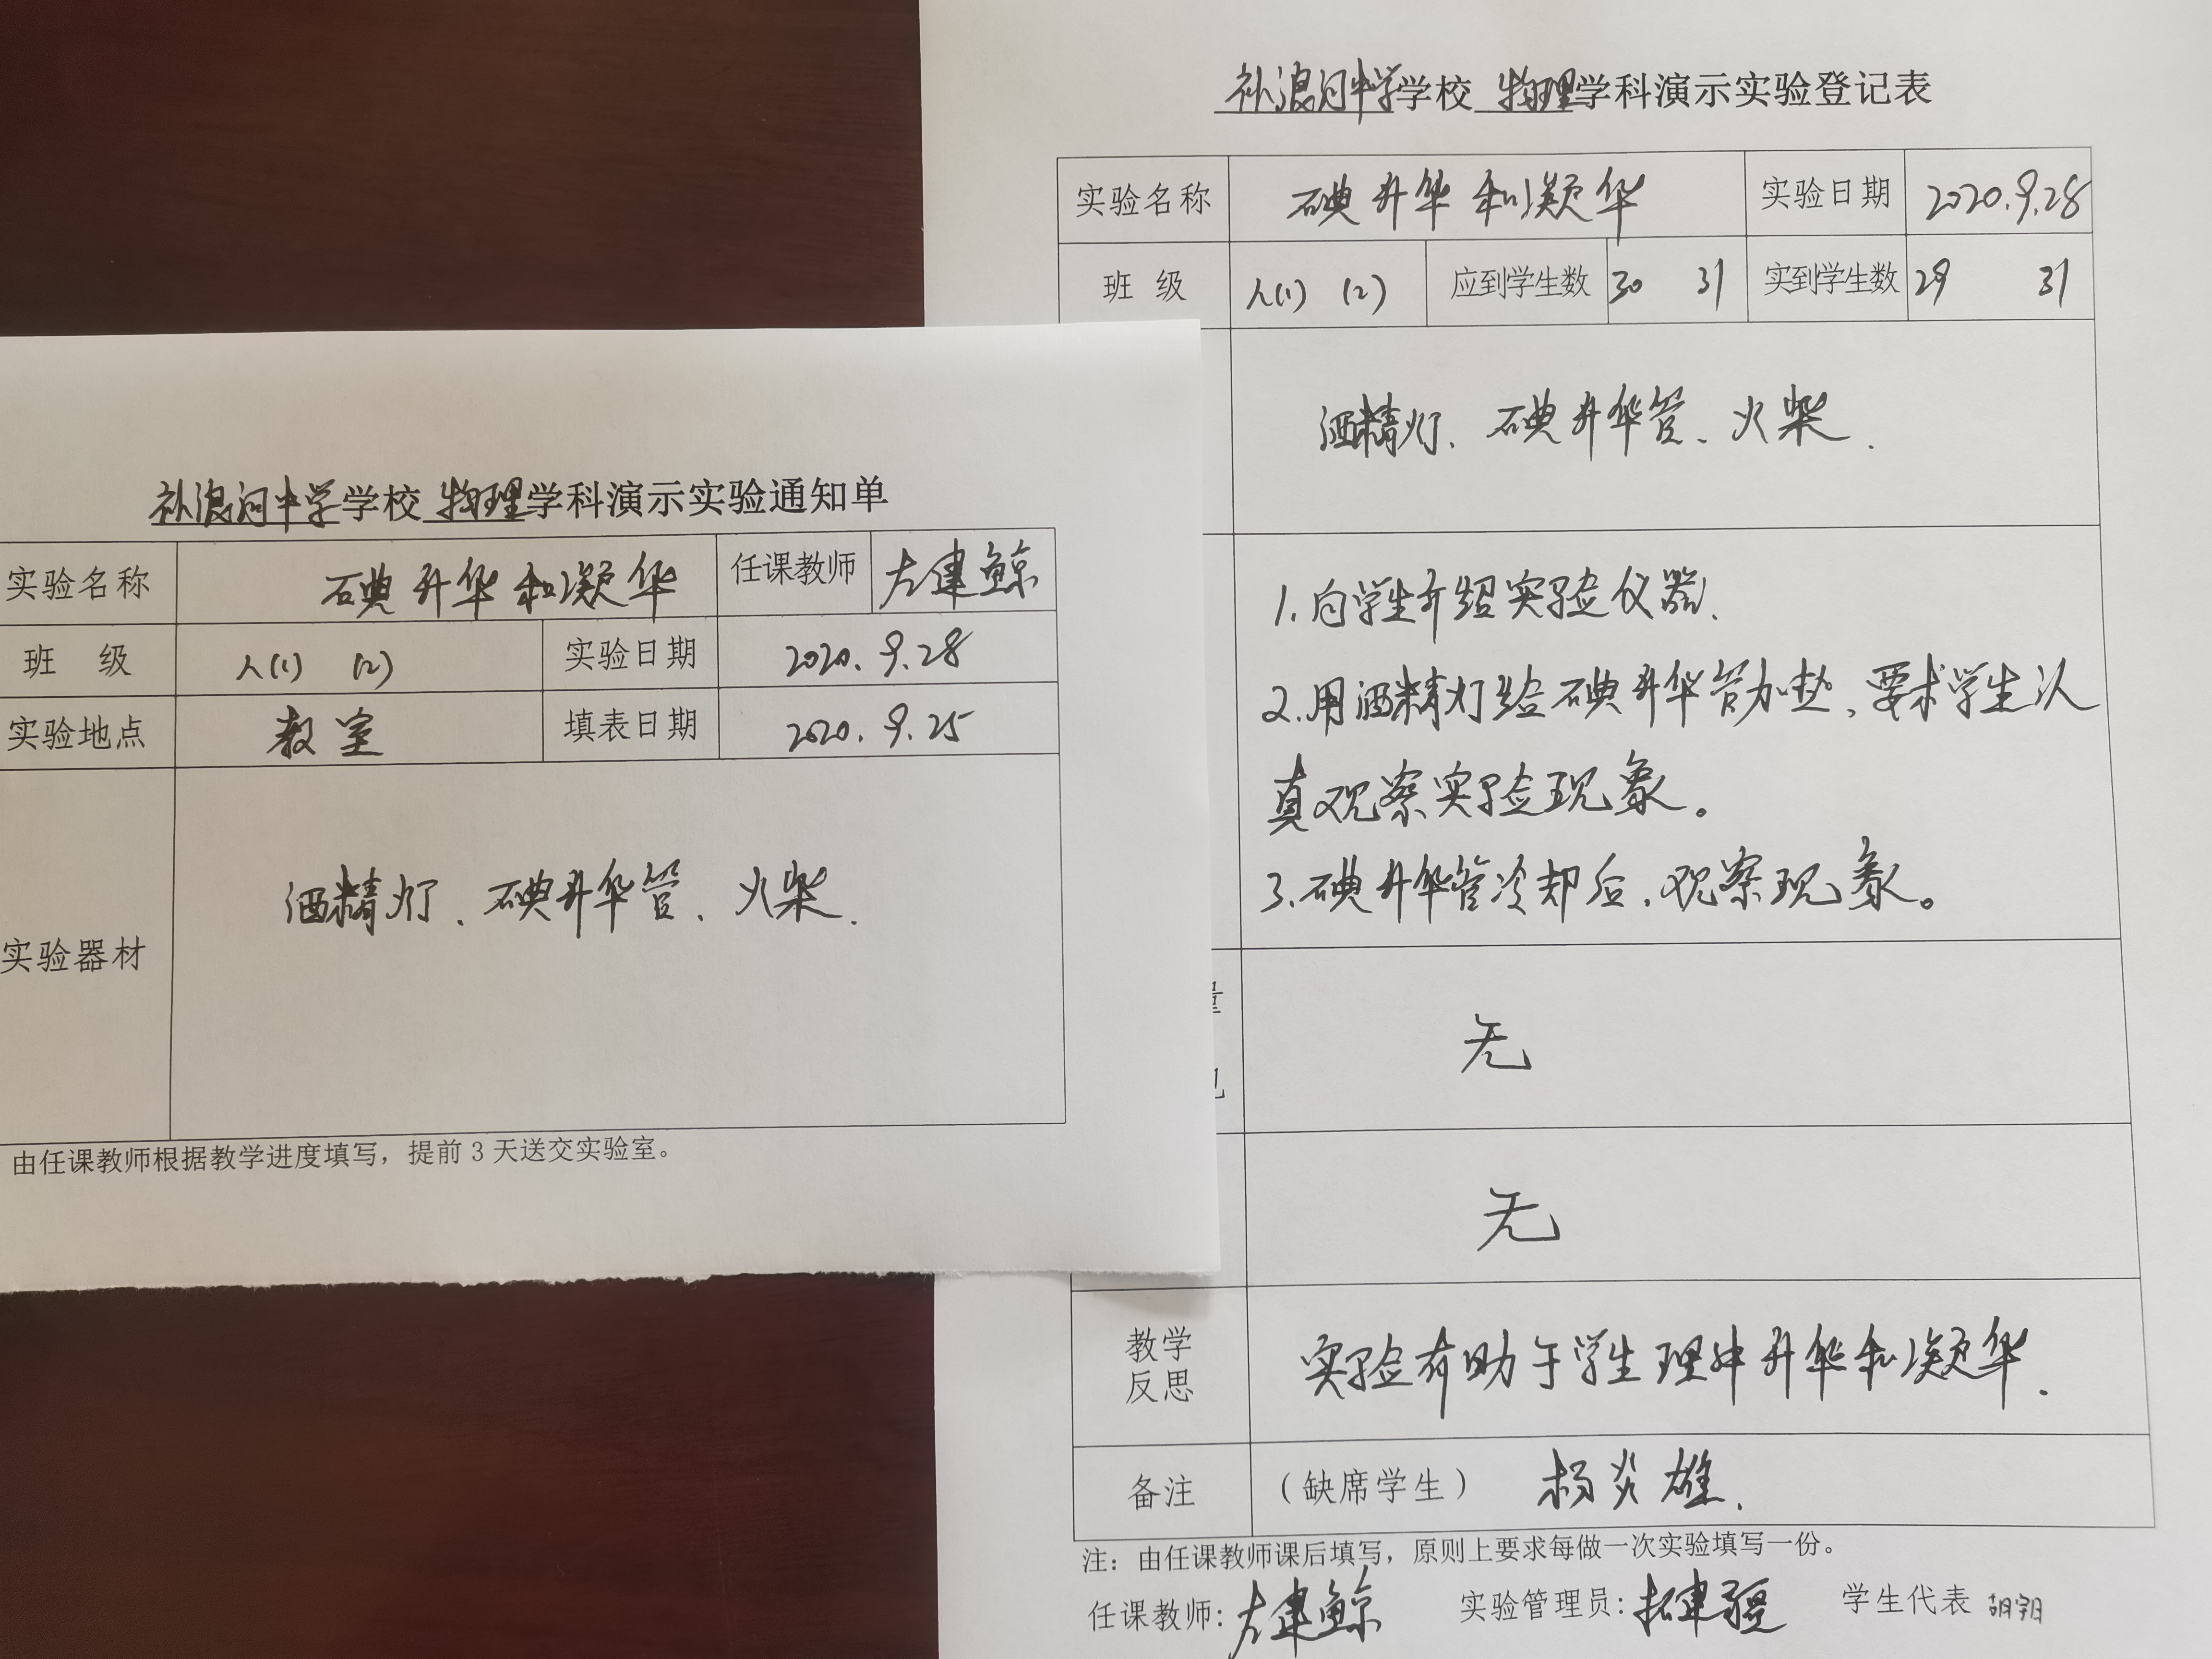 补浪河中学学校 物理学科演示实验通知单
实验名称 碘升华和凝华 任课教师 左建鲸
班 级 八(1) (2) 实验日期 2020.9.28
实验地点 教室 填表日期 2020.9.25
实验器材 酒精灯、碘升华管、火柴.
由任课教师根据教学进度填写，提前3天送交实验室。
补浪河中学学校 物理学科演示实验登记表
实验名称 碘升华和凝华 实验日期 2020.9.28
班 级 八(1) (2) 应到学生数 30 31 实到学生数 29 31
酒精灯、碘升华管、火柴.
1.向学生介绍实验仪器.
2.用酒精灯给碘升华管加热,要求学生认
真观察实验现象。
3.碘升华管冷却后,观察现象。
无
无
教学
反思
实验有助于学生理解升华和凝华.
备注 (缺席学生) 杨炎雄.
注：由任课教师课后填写，原则上要求每做一次实验填写一份。
任课教师:左建鲸 实验管理员:拓建疆 学生代表